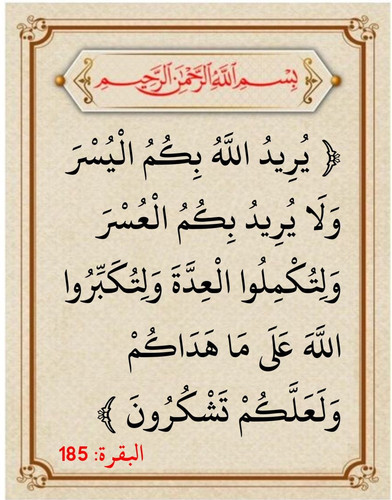 بِسْمِ اللَّهِ الرَّحْمَٰنِ الرَّحِيمِ
﴿ يُرِيدُ اللَّهُ بِكُمُ الْيُسْرَ
وَلَا يُرِيدُ بِكُمُ الْعُسْرَ
وَلِتُكْمِلُوا الْعِدَّةَ وَلِتُكَبِّرُوا
اللَّهَ عَلَى مَا هَدَاكُمْ
وَلَعَلَّكُمْ تَشْكُرُونَ ﴾
البقرة: 185